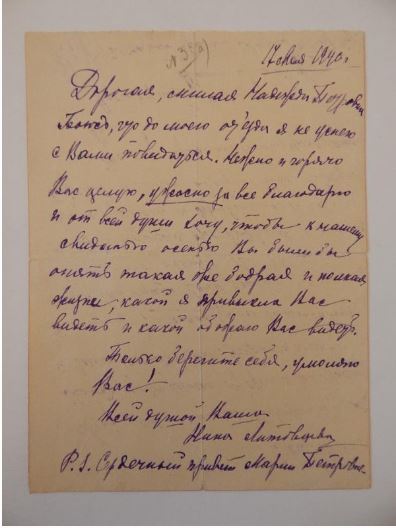 N 3 а)
17 июля 1940 г.
Дорогая, милая Надежда Петровна
Боюсь, что до моего отъезда я не успею
с Вами повидаться. Нежно и горячо
Вас целую, ужасно за все благодарю
и от всей души хочу, чтобы к нашему
свиданью осенью Вы были бы
опять такая же бодрая и полная
жизни, какой я привыкла Вас
видеть и какой обожаю Вас видеть.
Только берегите себя, умоляю
Вас!
Всей душой Ваша
Нина Литовцева
P.S. Сердечный привет Марии Петровне